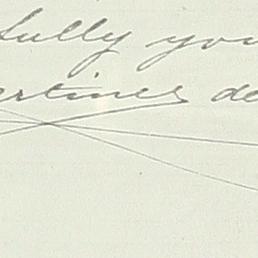 sfully you
ertines de